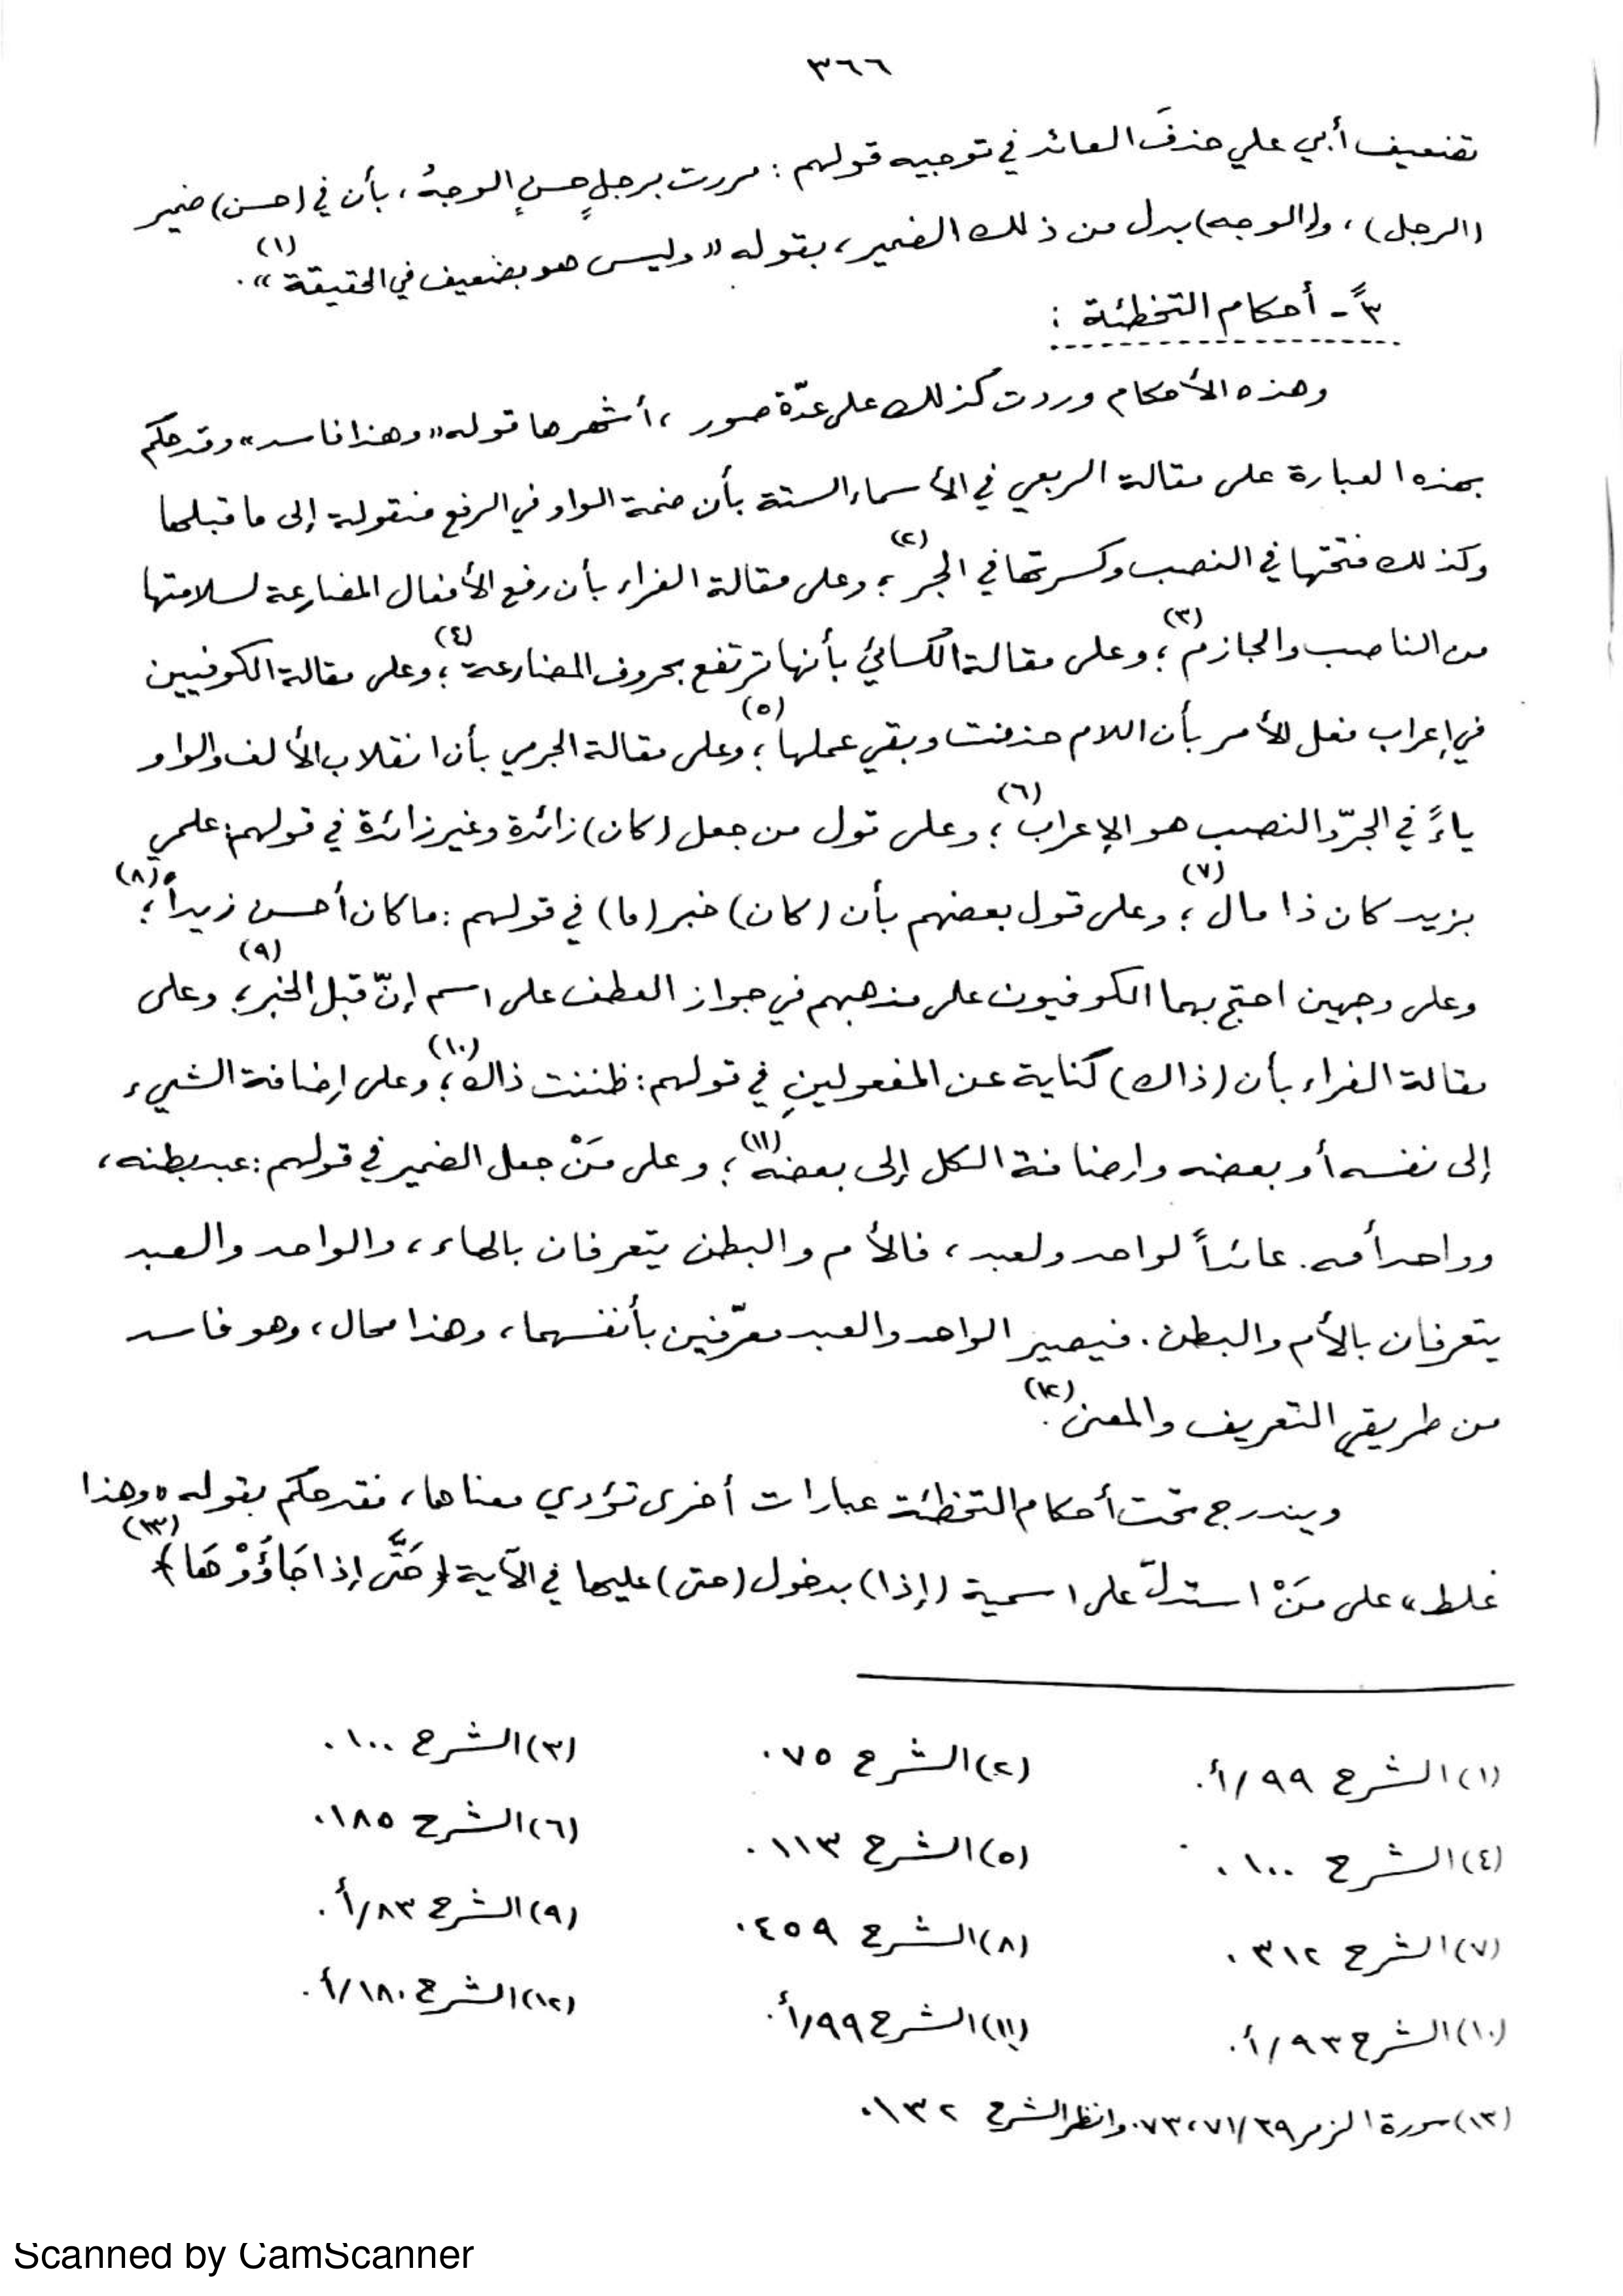 ٣٦٦
تضعيف أبي علي حذفَ العائد في توجيه قولهم : مررت برجلٍ حسنٍ الوجهُ ، بأن في (حسن) ضمير
(الرجل) ، و(الوجه) بدل من ذلك الضمير ، بقوله « وليس هو بضعيف في الحقيقة »(١) .
٣ً - أحكام التخطئة :
وهذه الأحكام وردت كذلك على عدّة صور ، أشهرها قوله « وهذا فاسد » وقد حكم
بهذه العبارة على مقالة الربعي في الأسماء الستة بأن ضمة الواو في الرفع منقولة إلى ما قبلها
وكذلك فتحتها في النصب وكسرتها في الجر(٢) ؛ وعلى مقالة الفراء بأن رفع الأفعال المضارعة لسلامتها
من الناصب والجازم(٣) ؛ وعلى مقالة الكسائي بأنها ترتفع بحروف المضارعة(٤) ؛ وعلى مقالة الكوفيين
في إعراب فعل الأمر بأن اللام حذفت وبقي عملها(٥) ؛ وعلى مقالة الجرمي بأن انقلاب الألف والواو
ياءً في الجرّ والنصب هو الإعراب(٦) ؛ وعلى قول من جعل (كان) زائدة وغير زائدة في قولهم : علمي
بزيد كان ذا مال(٧) ؛ وعلى قول بعضهم بأن (كان) خبر (ما) في قولهم : ما كان أحسن زيداً(٨) ؛
وعلى وجهين احتج بهما الكوفيون على مذهبهم في جواز العطف على اسم إنّ قبل الخبر(٩) ؛ وعلى
مقالة الفراء بأن (ذاك) كناية عن المفعولينِ في قولهم : ظننت ذاك(١٠) ؛ وعلى إضافة الشيء
إلى نفسه أو بعضه وإضافة الكل إلى بعضه(١١) ؛ وعلى مَنْ جعل الضمير في قولهم : عبد بطنه ،
وواحد أمه . عائداً لواحد ولعبد ، فالأم والبطن يتعرفان بالهاء ، والواحد والعبد
يتعرفان بالأم والبطن . فيصير الواحد والعبد معرّفين بأنفسهما ، وهذا محال ، وهو فاسد
من طريقي التعريف والمعنى(١٢) .
ويندرج تحت أحكام التخطئة عبارات أخرى تؤدي معناها ، فقد حكم بقوله « وهذا
غلط » على مَنْ استدلّ على اسمية (إذا) بدخول (حتى) عليها في الآية ﴿ حَتَّى إذا جَاؤُوْهَا ﴾(١٣)
(١) الشرح ٩٩/أ . (٢) الشرح ٧٥ . (٣) الشرح ١٠٠ .
(٤) الشرح ١٠٠ . (٥) الشرح ١١٣ . (٦) الشرح ١٨٥ .
(٧) الشرح ٣١٢ . (٨) الشرح ٤٥٩ . (٩) الشرح ٨٣/أ .
(١٠) الشرح ٩٣/أ . (١١) الشرح ٩٩/أ . (١٢) الشرح ١٨٠/أ .
(١٣) سورة الزمر ٧١/٣٩ ، ٧٣ . وانظر الشرح ١٣٢ .
Scanned by CamScanner